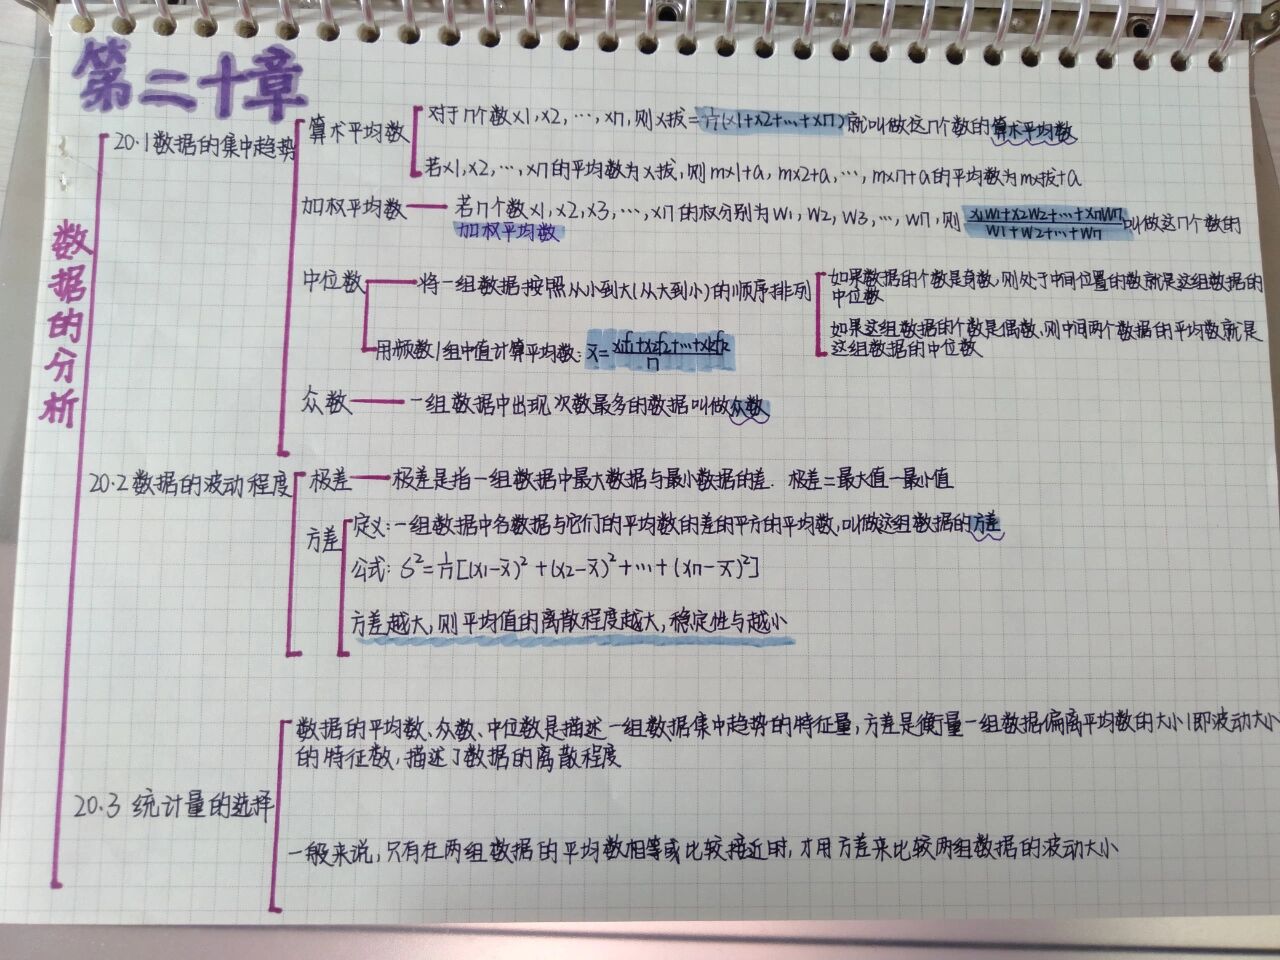 第二十章
数据的分析
20.1数据的集中趋势
算术平均数
对于n个数x1,x2,…,xn,则x拔=1/n(x1+x2+…+xn)就叫做这n个数的算术平均数
若x1,x2,…,xn的平均数为x拔,则mx1+a,mx2+a,…,mxn+a的平均数为mx拔+a
加权平均数
若n个数x1,x2,x3,…,xn的权分别为w1,w2,w3,…,wn,则 (x1w1+x2w2+…+xnwn)/(w1+w2+…+wn) 叫做这n个数的
加权平均数
中位数
将一组数据按照从小到大(从大到小)的顺序排列
如果数据的个数是奇数,则处于中间位置的数就是这组数据的
中位数
如果这组数据的个数是偶数,则中间两个数据的平均数就是
这组数据的中位数
用频数/组中值计算平均数: x̄=(x1f1+x2f2+…+xkfk)/n
众数
一组数据中出现次数最多的数据叫做众数
20.2数据的波动程度
极差
极差是指一组数据中最大数据与最小数据的差. 极差=最大值-最小值
方差
定义:一组数据中各数据与它们的平均数的差的平方的平均数,叫做这组数据的方差
公式: S²=1/n[(x1-x̄)²+(x2-x̄)²+…+(xn-x̄)²]
方差越大,则平均值的离散程度越大,稳定性与越小
20.3 统计量的选择
数据的平均数、众数、中位数是描述一组数据集中趋势的特征量,方差是衡量一组数据偏离平均数的大小(即波动大小
的特征数,描述了数据的离散程度
一般来说,只有在两组数据的平均数相等或比较接近时,才用方差来比较两组数据的波动大小